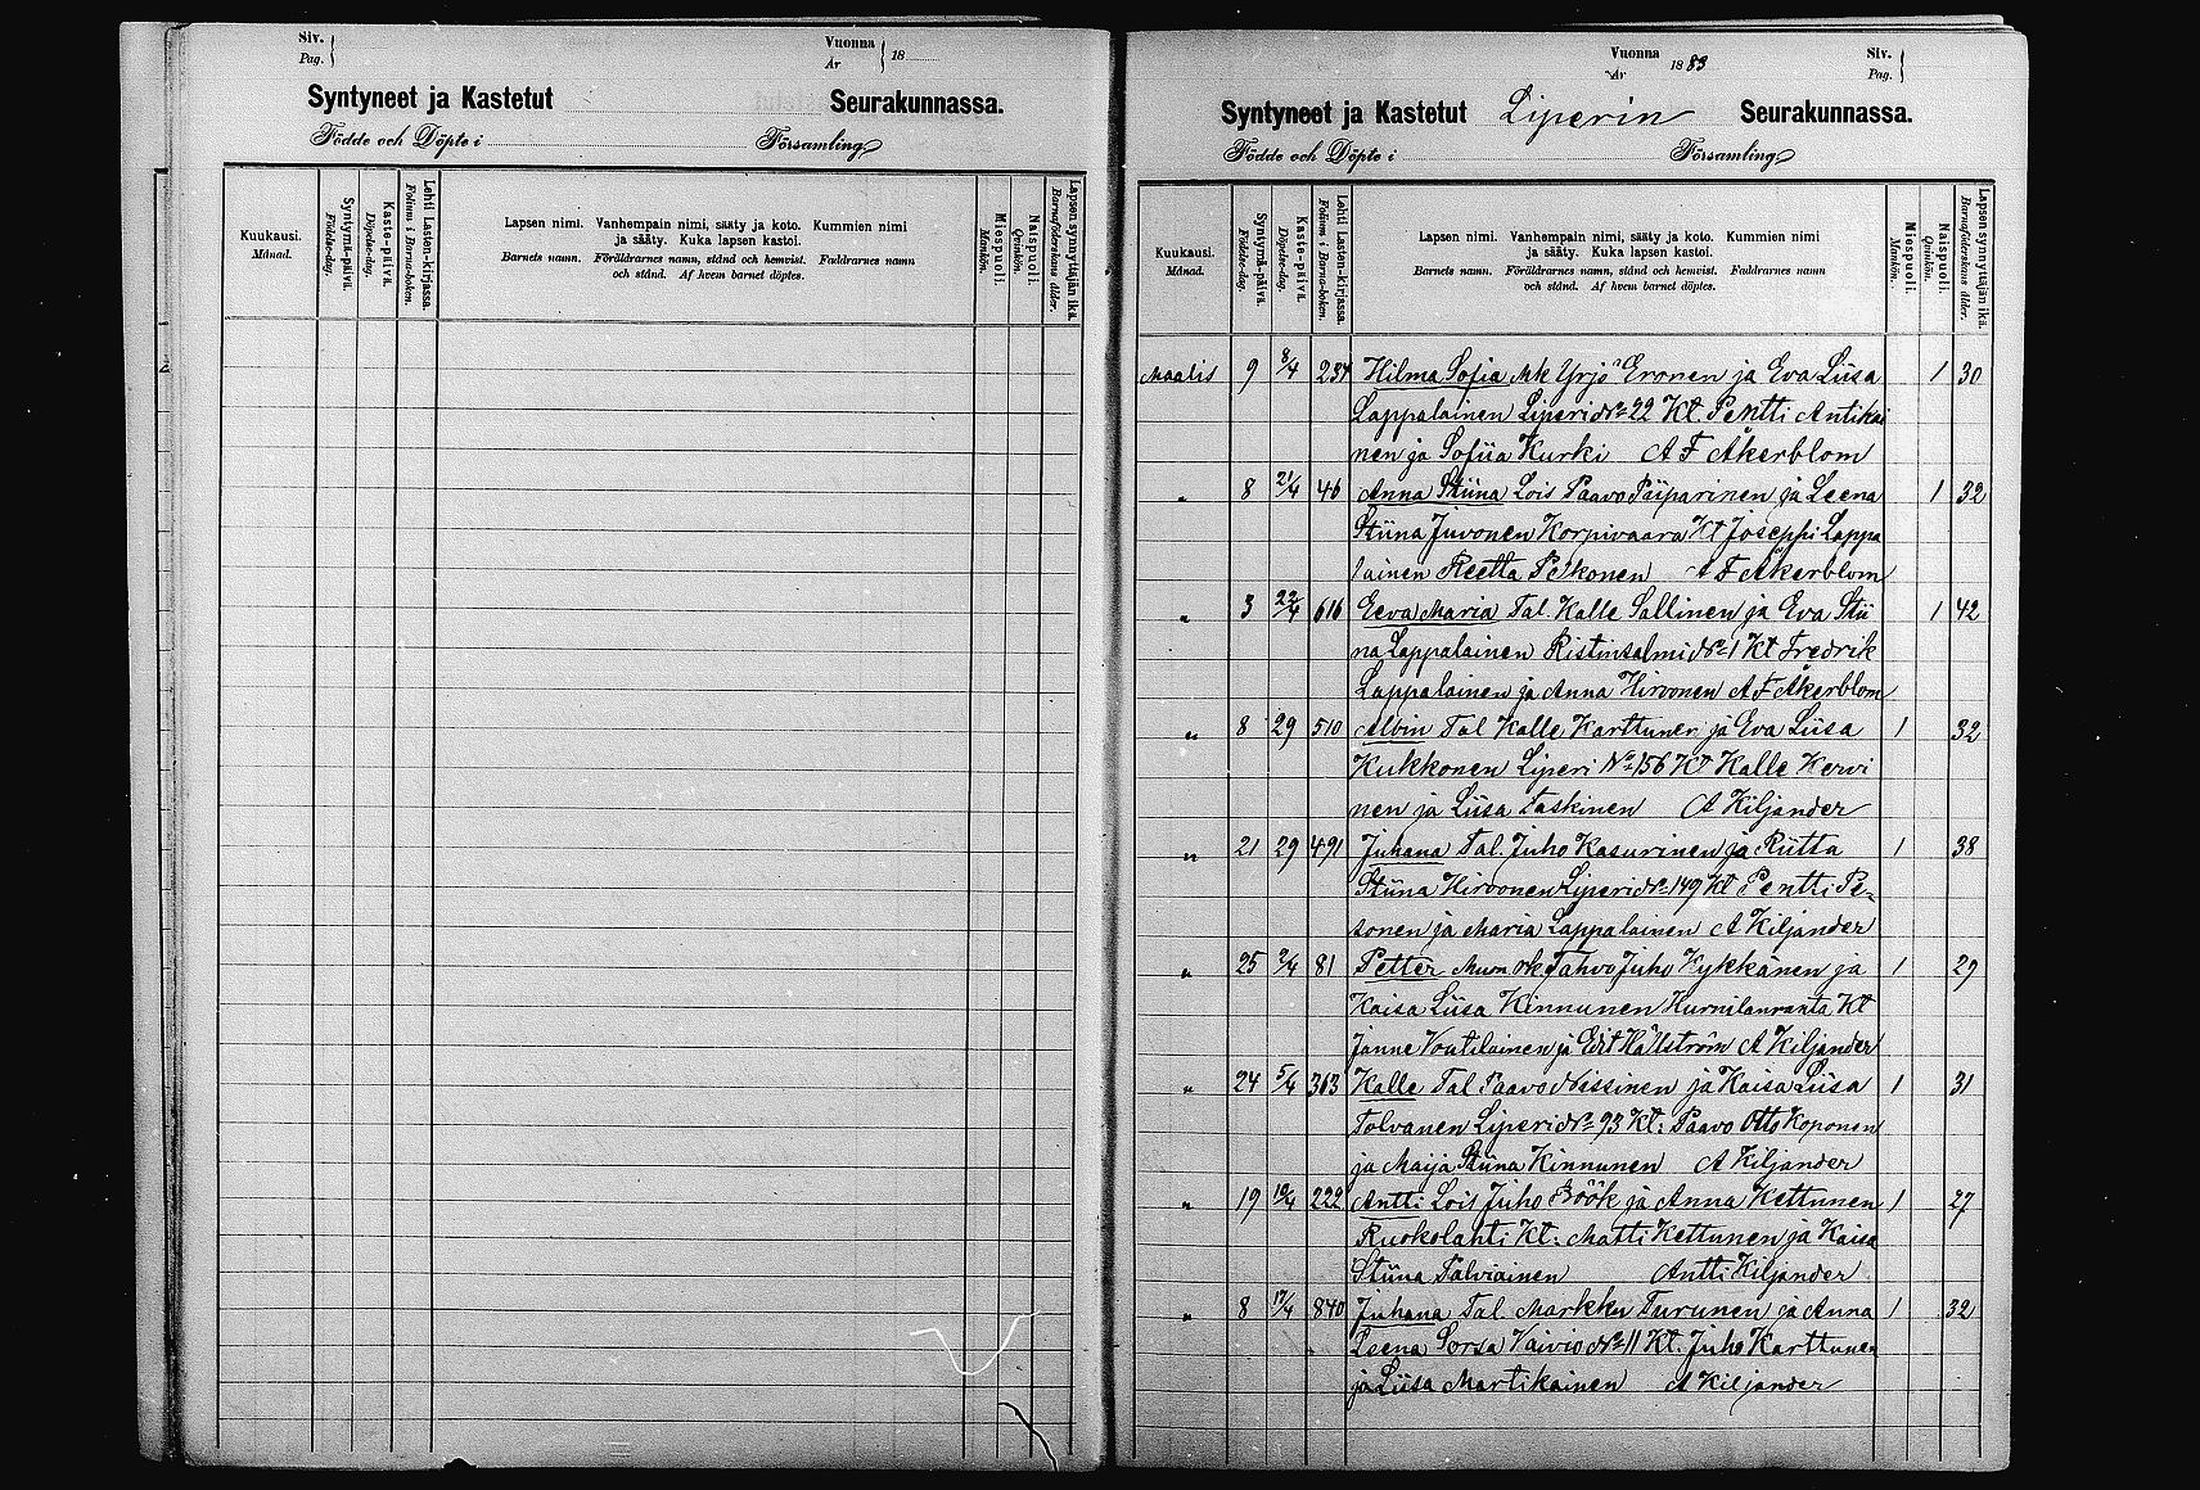 Siv.
Pag.
Vuonna
År
18
Syntyneet ja Kastetut Seurakunnassa.
Födde och Döpte i Församling.
Kuukausi.
Månad.
Syntymä-päivä.
Födelse-dag.
Kaste-päivä.
Döpelse-dag.
Lehti Lasten-kirjassa.
Folium i Barna-boken.
Lapsen nimi. Vanhempain nimi, sääty ja koto. Kummien nimi
ja sääty. Kuka lapsen kastoi.
Barnets namn. Föräldrarnes namn, stånd och hemvist. Faddrarnes namn
och stånd. Af hvem barnet döptes.
Miespuoli.
Mankön.
Naispuoli.
Qvinkön.
Lapsen synnyttäjän ikä.
Barnaföderskans ålder.
Vuonna
År
1883
Siv.
Pag.
Syntyneet ja Kastetut Liperin Seurakunnassa.
Födde och Döpte i Församling.
Kuukausi.
Månad.
Syntymä-päivä.
Födelse-dag.
Kaste-päivä.
Döpelse-dag.
Lehti Lasten-kirjassa.
Folium i Barna-boken.
Lapsen nimi. Vanhempain nimi, sääty ja koto. Kummien nimi
ja sääty. Kuka lapsen kastoi.
Barnets namn. Föräldrarnes namn, stånd och hemvist. Faddrarnes namn
och stånd. Af hvem barnet döptes.
Miespuoli.
Mankön.
Naispuoli.
Qvinkön.
Lapsen synnyttäjän ikä.
Barnaföderskans ålder.
Maalis 9 8/4 234 Hilma Sofia Mk Yrjö Eronen ja Eva Liisa 1 30
Lappalainen Liperi No 22 Kt. Pentti Antikai
nen ja Sofiia Kurki A F Åkerblom
" 8 21/4 46 Anna Stiina Lois Paavo Piiparinen ja Leena 1 32
Stiina Juvonen Korpivaara Kt Joseppi Lappa
lainen Reetta Pelkonen A F Åkerblom
" 3 22/4 616 Eeva Maria Tal. Kalle Sallinen ja Eva Stii 1 42
na Lappalainen Ristinsalmi No 1 Kt Fredrik
Lappalainen ja Anna Hirvonen A F Åkerblom
" 8 29 510 Albin Tal Kalle Karttunen ja Eva Liisa 1 32
Kukkonen Liperi No 156 Kt Kalle Hervi
nen ja Liisa Taskinen A Kiljander
" 21 29 491 Juhana Tal. Juho Kasurinen ja Riitta 1 38
Stiina Hirvonen Liperi No 149 Kt Pentti Pe=
sonen ja Maria Lappalainen A Kiljander
" 25 2/4 81 Petter Muon mk Tahvo Juho Kykkänen ja 1 29
Kaisa Liisa Kinnunen Kt
Janne Voutilainen ja Edit Hällström A Kiljander
" 24 5/4 363 Kalle Tal Paavo Nissinen ja Kaisa Liisa 1 31
Tolvanen Liperi No 93 Kt: Paavo Otto Koponen
ja Maija Stiina Kinnunen A Kiljander
" 19 10/4 222 Antti Lois Juho Böök ja Anna Kettunen 1 27
Ruokolahti Kt: Matti Kettunen ja Kaisa
Stiina Talviainen Antti Kiljander
" 8 17/4 840 Juhana Tal. Markku Turunen ja Anna 1 32
Leena Sorsa Vaivio No 11 Kt. Juho Karttunen
ja Liisa Martikainen A Kiljander